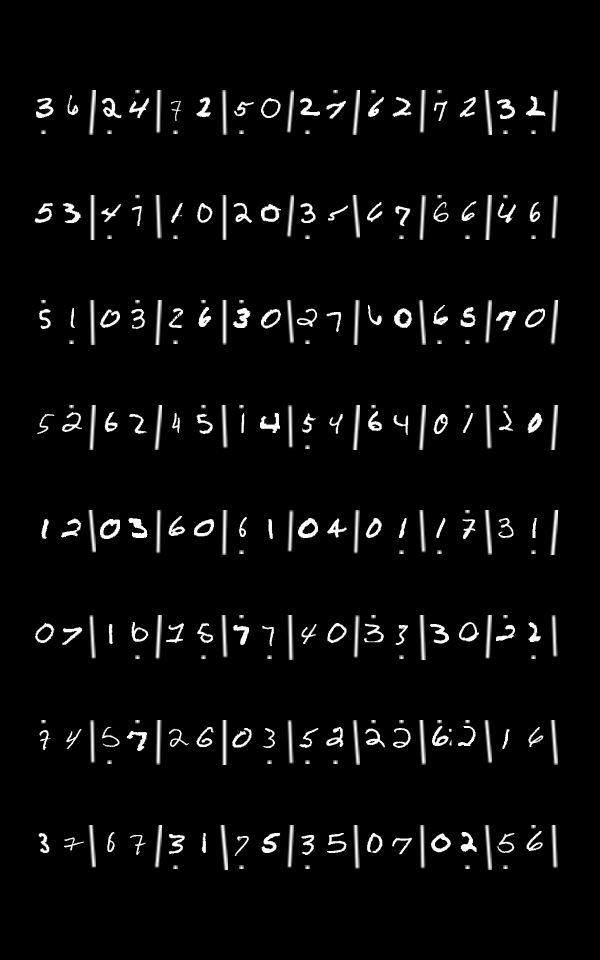 3 6 | 2 4 | 7 2 | 5 0 | 2 7 | 6 2 | 7 2 | 3 2 |
5 3 | 4 7 | 1 0 | 2 0 | 3 5 | 6 7 | 6 6 | 4 6 |
5 1 | 0 3 | 2 6 | 3 0 | 2 7 | 6 0 | 6 5 | 7 0 |
5 2 | 6 2 | 4 5 | 1 4 | 5 4 | 6 4 | 0 1 | 2 0 |
1 2 | 0 3 | 6 0 | 6 1 | 0 4 | 0 1 | 1 7 | 3 1 |
0 7 | 1 6 | 1 5 | 7 7 | 4 0 | 3 3 | 3 0 | 2 2 |
7 4 | 5 7 | 2 6 | 0 3 | 5 2 | 2 2 | 6 2 | 1 6 |
3 7 | 6 7 | 3 1 | 7 5 | 3 5 | 0 7 | 0 2 | 5 6 |